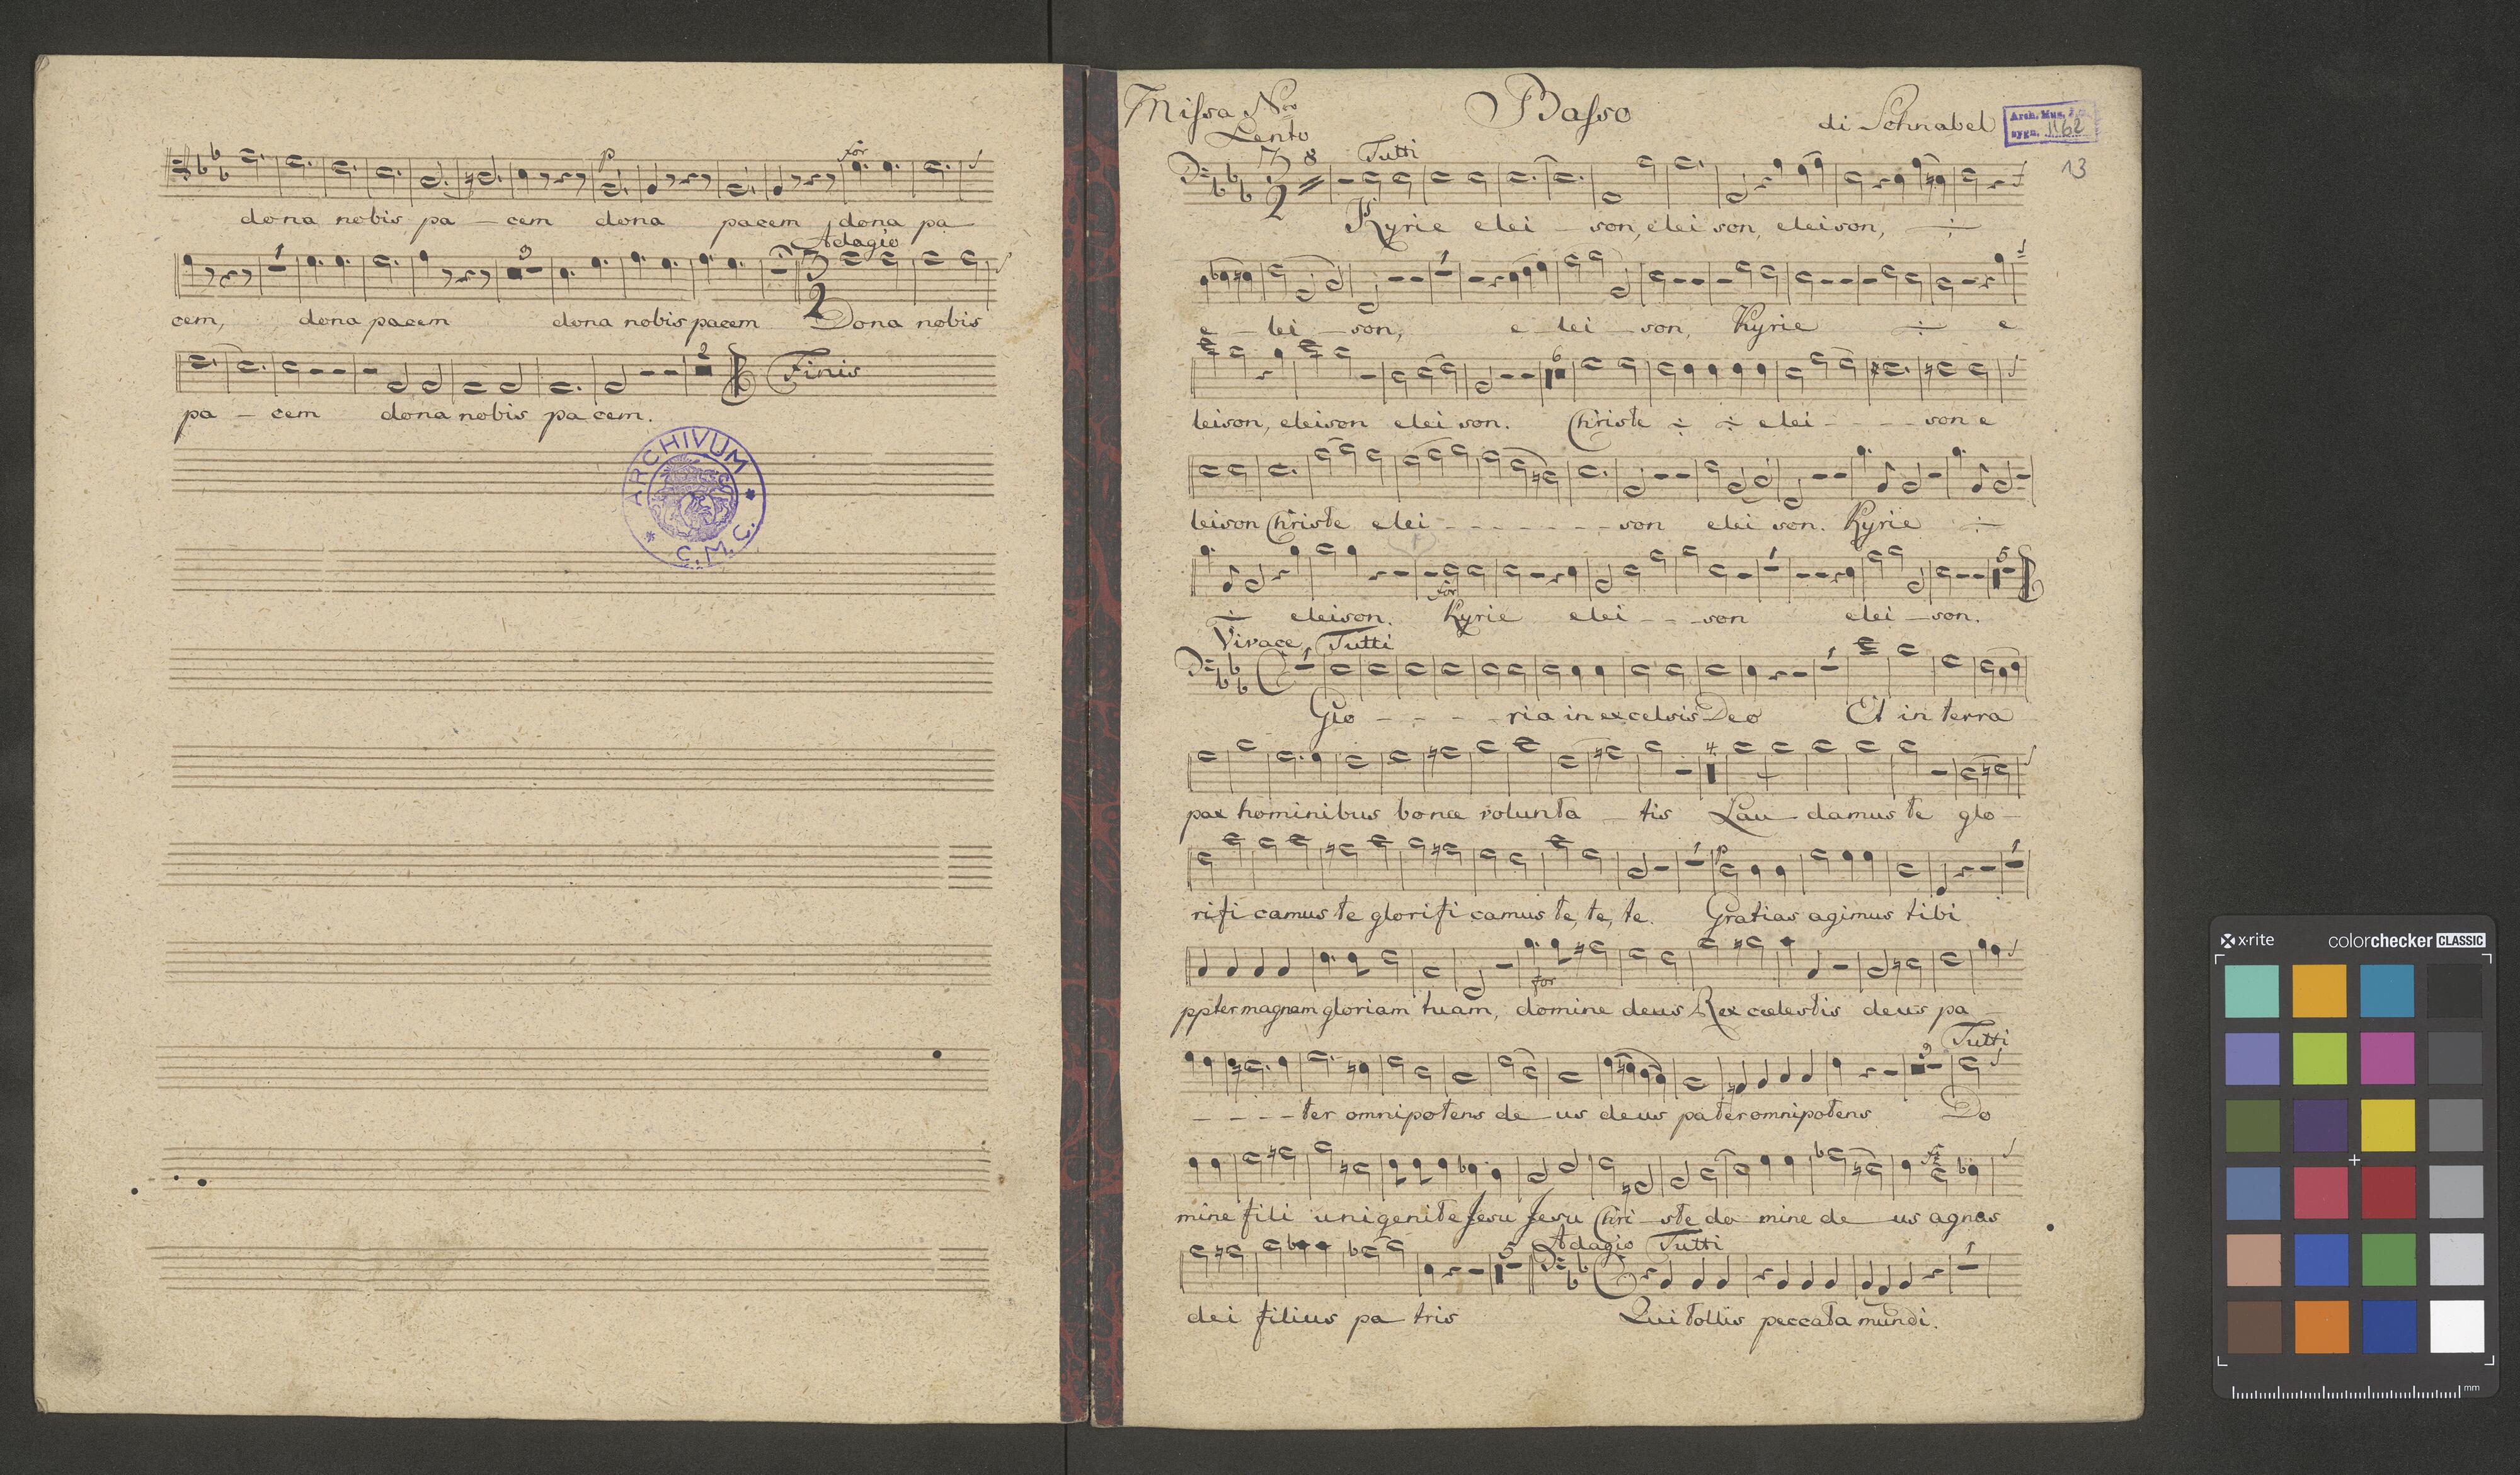 p for
dona nobis pa - cem dona pacem dona pa
Adagio
cem, dona pacem dona nobis pacem Dona nobis
Finis
pa - cem dona nobis pacem.
ARCHIVUM
C.M.C.
Missa Nro Basso di Schnabel
Arch. Mus. J. G.
sygn. 1162
13
Lento
3 2 8 Tutti
Kyrie elei - son, elei son, eleison, ÷
e - lei - son, e lei - son, Kyrie ÷ e
leison, eleison elei son. Christe ÷ ÷ elei - - - - son e
leison Christe elei - - - - - - - son elei son. Kyrie ÷
for
÷ eleison. Kyrie elei - - - son elei - son.
Vivace, Tutti
Glo - - - - ria in excelsis Deo Et in terra
4
pax hominibus bonæ volunta - tis Lau - damus te glo -
p
rifi camus te glorifi camus te, te, te. Gratias agimus tibi
for
ppter magnam gloriam tuam, domine deus Rex cœlestis deus pa -
Tutti
- - - - ter omnipotens de - us deus pater omnipotens Do
mine fili unigenite Jesu Jesu Chri - ste do mine de - us agnus
5 Adagio Tutti
dei filius pa tris Qui tollis peccata mundi.
x-rite colorchecker CLASSIC
mm